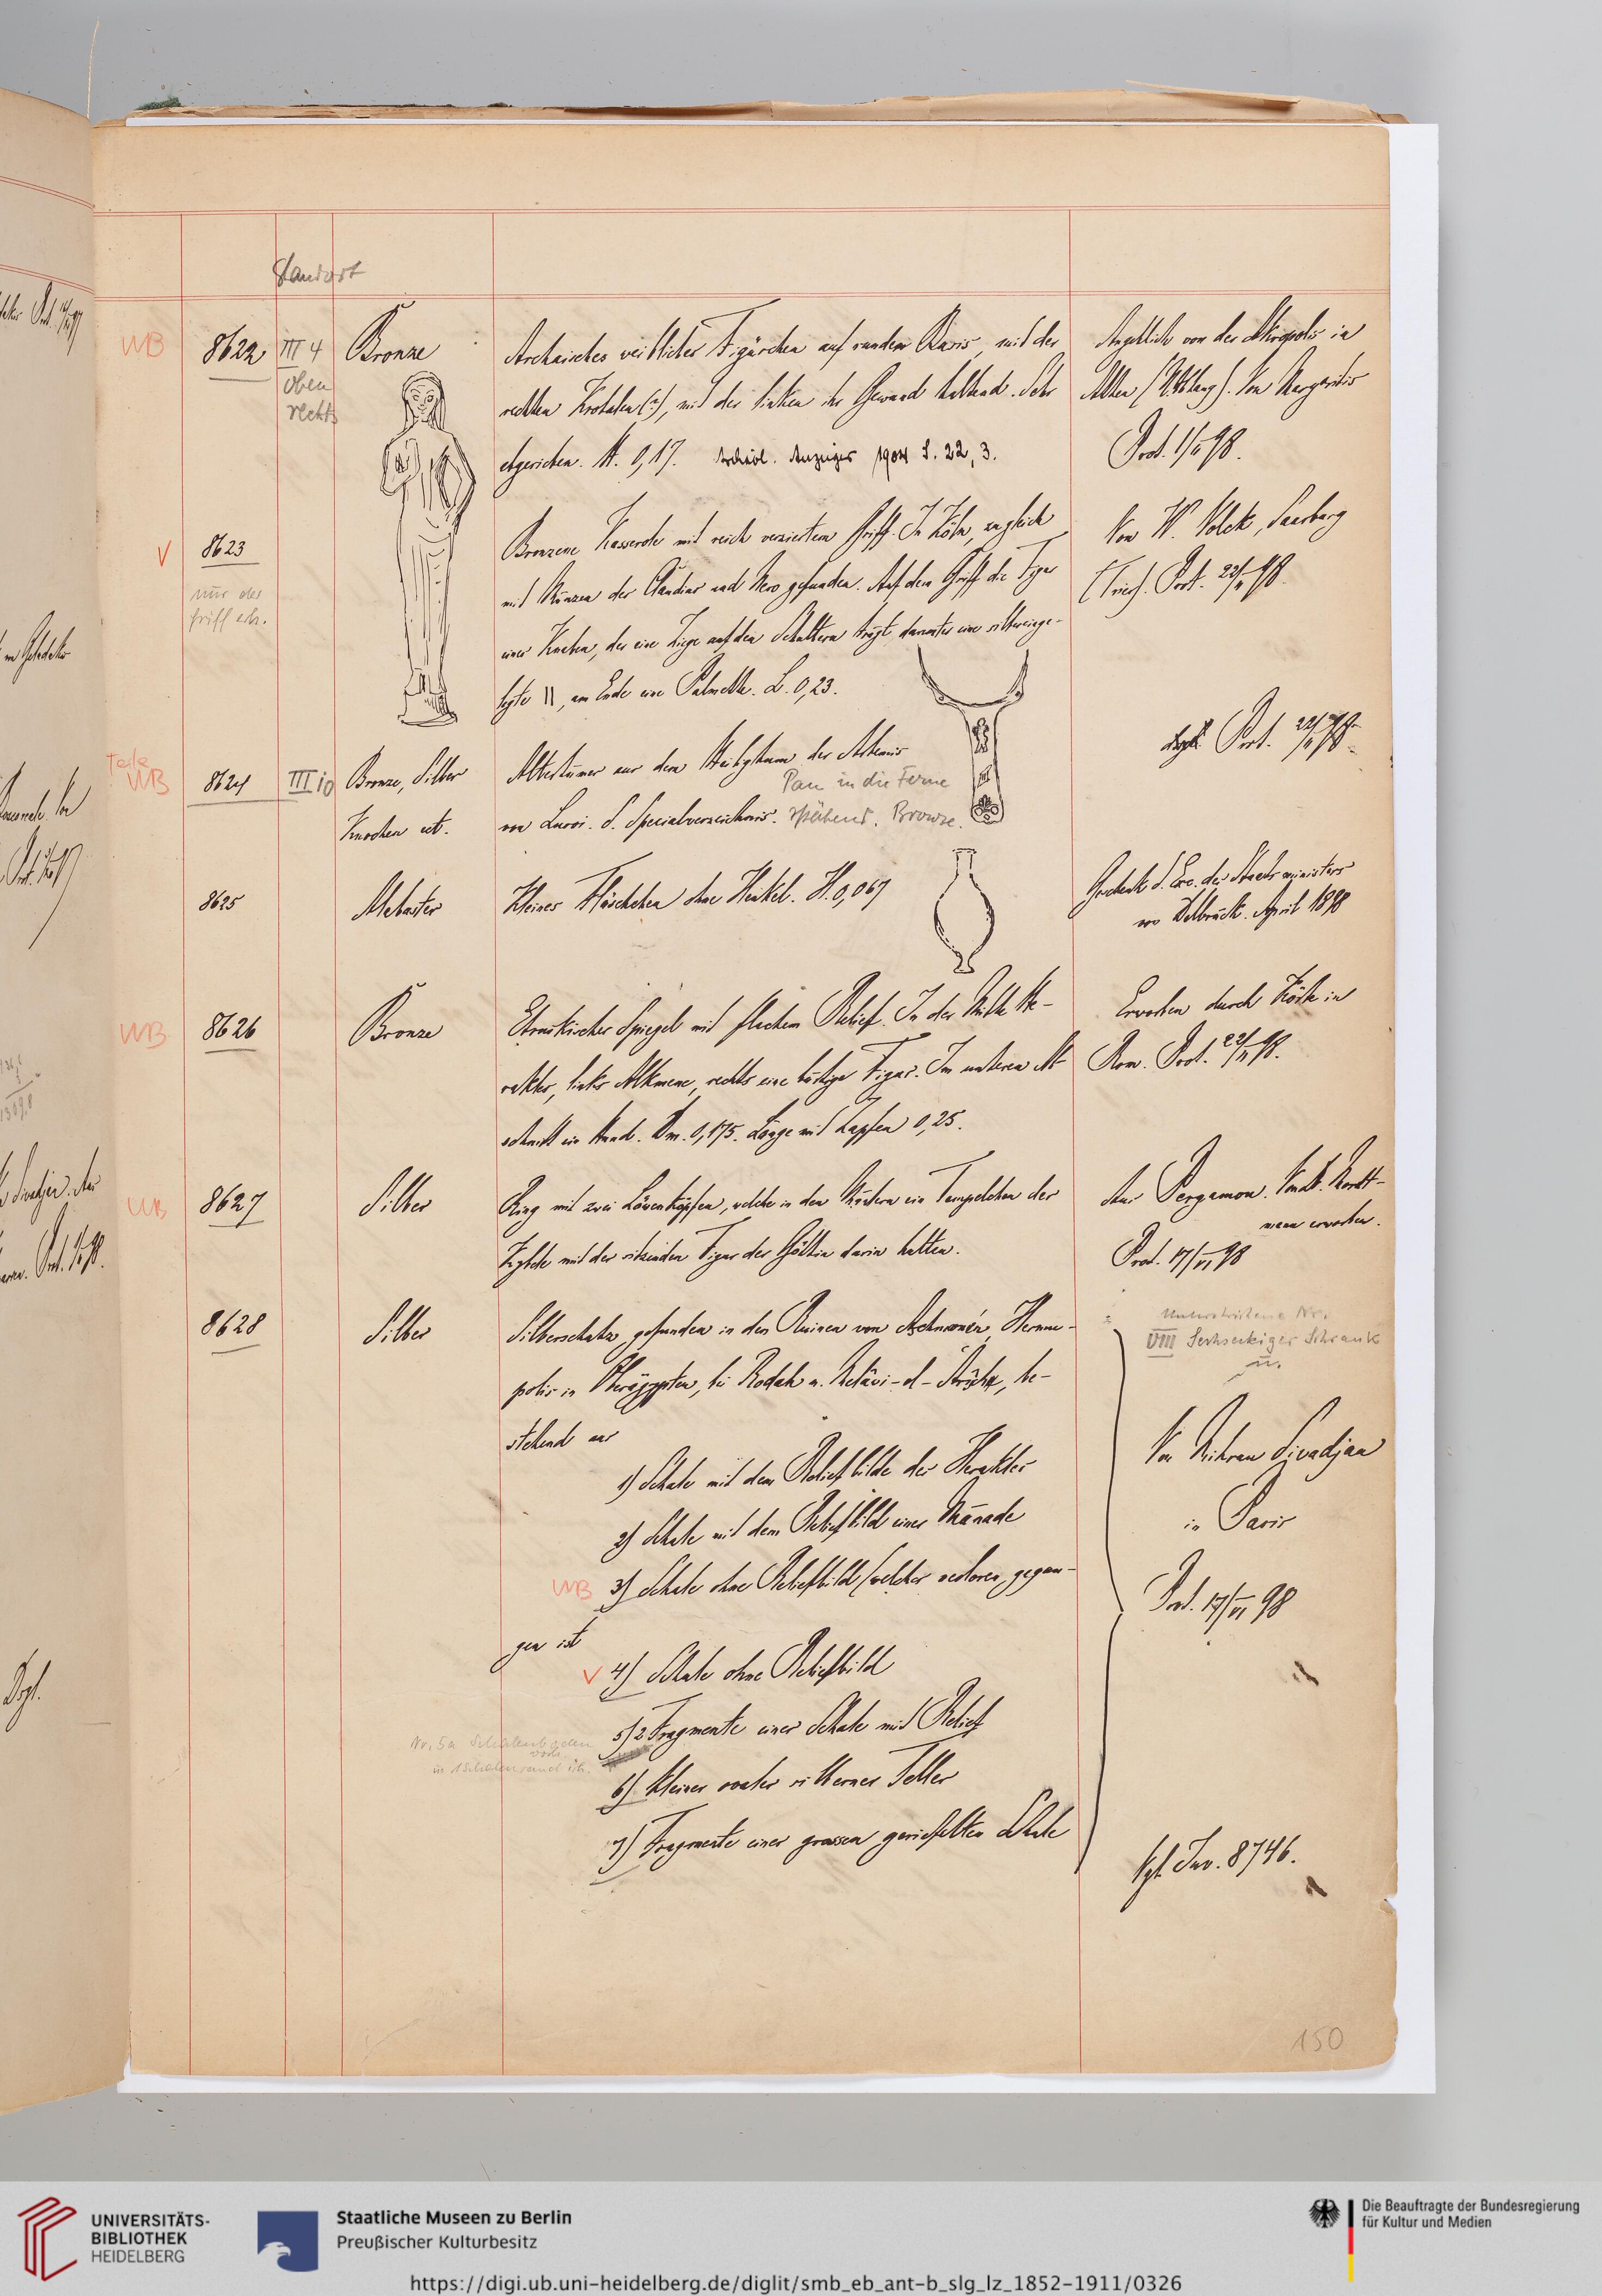 Standort
WB 8622 III 4 Bronze Archaisches weibliches Figürchen auf runder Basis, mit der Angeblich von der Akropolis in
oben
rechts
rechten Krotalen (?), mit der linken ihr Gewand haltend. Sehr Athen. Von Margaritis
abgerieben. H. 0,17. Archäol. Anzeiger 1904 S. 22, 3. Prot. 98.
V 8623 Bronzene Kasserole mit reich verziertem Griff. In Köln, zugleich Von W. Volck, Saarburg
nur der
Griff erh.
mit Münzen des Claudius und Nero gefunden. Auf dem Griff die Figur (Trier). Prot. 22/ 98.
eines Knaben, der eine Ziege auf den Schultern trägt, darunter eine silbereinge-
legte, am Ende eine Palmette. L. 0,23.
Teile
WB 8624 III 10 Bronze, Silber Altertümer aus dem Heiligtum der Artemis Prot. 22/ 98.
Pan in die Ferne
Knochen ect. von Lusoi. S. Specialverzeichnis. spähend. Bronze.
8625 Alabaster Kleines Fläschchen ohne Henkel. H. 0,067 Geschenk S. Exc. des Staatsministers
von Delbrück. April 1898
WB 8626 Bronze Etruskischer Spiegel mit flachem Relief. In der Mitte He- Erworben durch Körte in
rakles, links Alkmene, rechts eine bärtige Figur. Im unteren Ab- Rom. Prot. 22/ 98.
schnitt ein Hund. Dm. 0,175. Länge mit Zapfen 0,25.
WB 8627 Silber Ring mit zwei Löwenköpfen, welche in den Mäulern ein Tempelchen der Aus Pergamon. Mordt-
mann erworben.
Kybele mit der sitzenden Figur der Göttin darin halten. Prot. 17/VI 98
8628 Silber Silberschatz, gefunden in den Ruinen von Hermu-
polis in Oberägypten, bei Rodah, be-
stehend aus
Unterstrichene Nr.
VIII Sechseckiger Schrank
u.
1) Schale mit dem Reliefbilde des Herakles
2) Schale mit dem Reliefbild einer Mänade
WB 3) Schale ohne Reliefbild (welches verloren gegan-
gen ist
V 4) Schale ohne Reliefbild
5) 2 Fragmente einer Schale mit Relief
Nr. 5a Schalenboden
6) Kleiner ovaler silberner Teller
7) Fragmente einer grossen geriefelten Schale
Von Mihran Sivadjan
in Paris
Prot. 17/VI 98
Vgl. Inv. 8746.
150
UNIVERSITÄTS-
BIBLIOTHEK
HEIDELBERG
Staatliche Museen zu Berlin
Preußischer Kulturbesitz
Die Beauftragte der Bundesregierung
für Kultur und Medien
https://digi.ub.uni-heidelberg.de/diglit/smb_eb_ant-b_slg_lz_1852-1911/0326